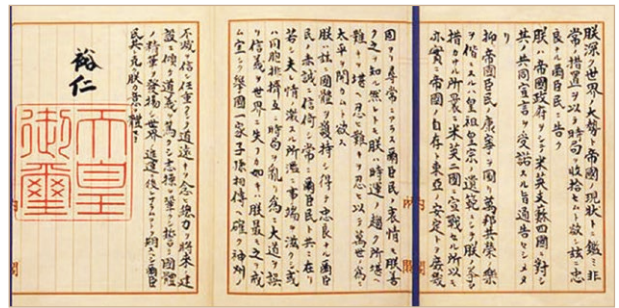 朕深ク世界ノ大勢ト帝國ノ現状トニ鑑ミ非
常ノ措置ヲ以テ時局ヲ收拾セムト欲シ茲ニ忠
良ナル爾臣民ニ告ク
朕ハ帝國政府ヲシテ米英支蘇四國ニ對シ
其ノ共同宣言ヲ受諾スル旨通告セシメタ
リ
抑〻帝國臣民ノ康寧ヲ圖リ萬邦共榮ノ樂
ヲ偕ニスルハ皇祖皇宗ノ遺範ニシテ朕ノ拳〻
措カサル所曩ニ米英二國ニ宣戰セル所以モ
亦實ニ帝國ノ自存ト東亞ノ安定トヲ庶幾
内閣
固ヨリ尋常ニアラス爾臣民ノ衷情モ朕善
ク之ヲ知ル然レトモ朕ハ時運ノ趨ク所堪ヘ
難キヲ堪ヘ忍ヒ難キヲ忍ヒ以テ萬世ノ爲ニ
太平ヲ開カムト欲ス
朕ハ茲ニ國體ヲ護持シ得テ忠良ナル爾臣
民ノ赤誠ニ信倚シ常ニ爾臣民ト共ニ在リ
若シ夫レ情ノ激スル所濫ニ事端ヲ滋クシ或
ハ同胞排擠互ニ時局ヲ亂リ爲ニ大道ヲ誤
リ信義ヲ世界ニ失フカ如キハ朕最モ之ヲ戒
ム宜シク擧國一家子孫相傳ヘ確ク神州ノ
不滅ヲ信シ任重クシテ道遠キヲ念ヒ總力ヲ將來ノ建
設ニ傾ケ道義ヲ篤クシ志操ヲ鞏クシ誓テ國體
ノ精華ヲ發揚シ世界ノ進運ニ後レサラムコトヲ期スヘシ爾臣
民其レ克ク朕カ意ヲ體セヨ
裕仁
天皇
御璽